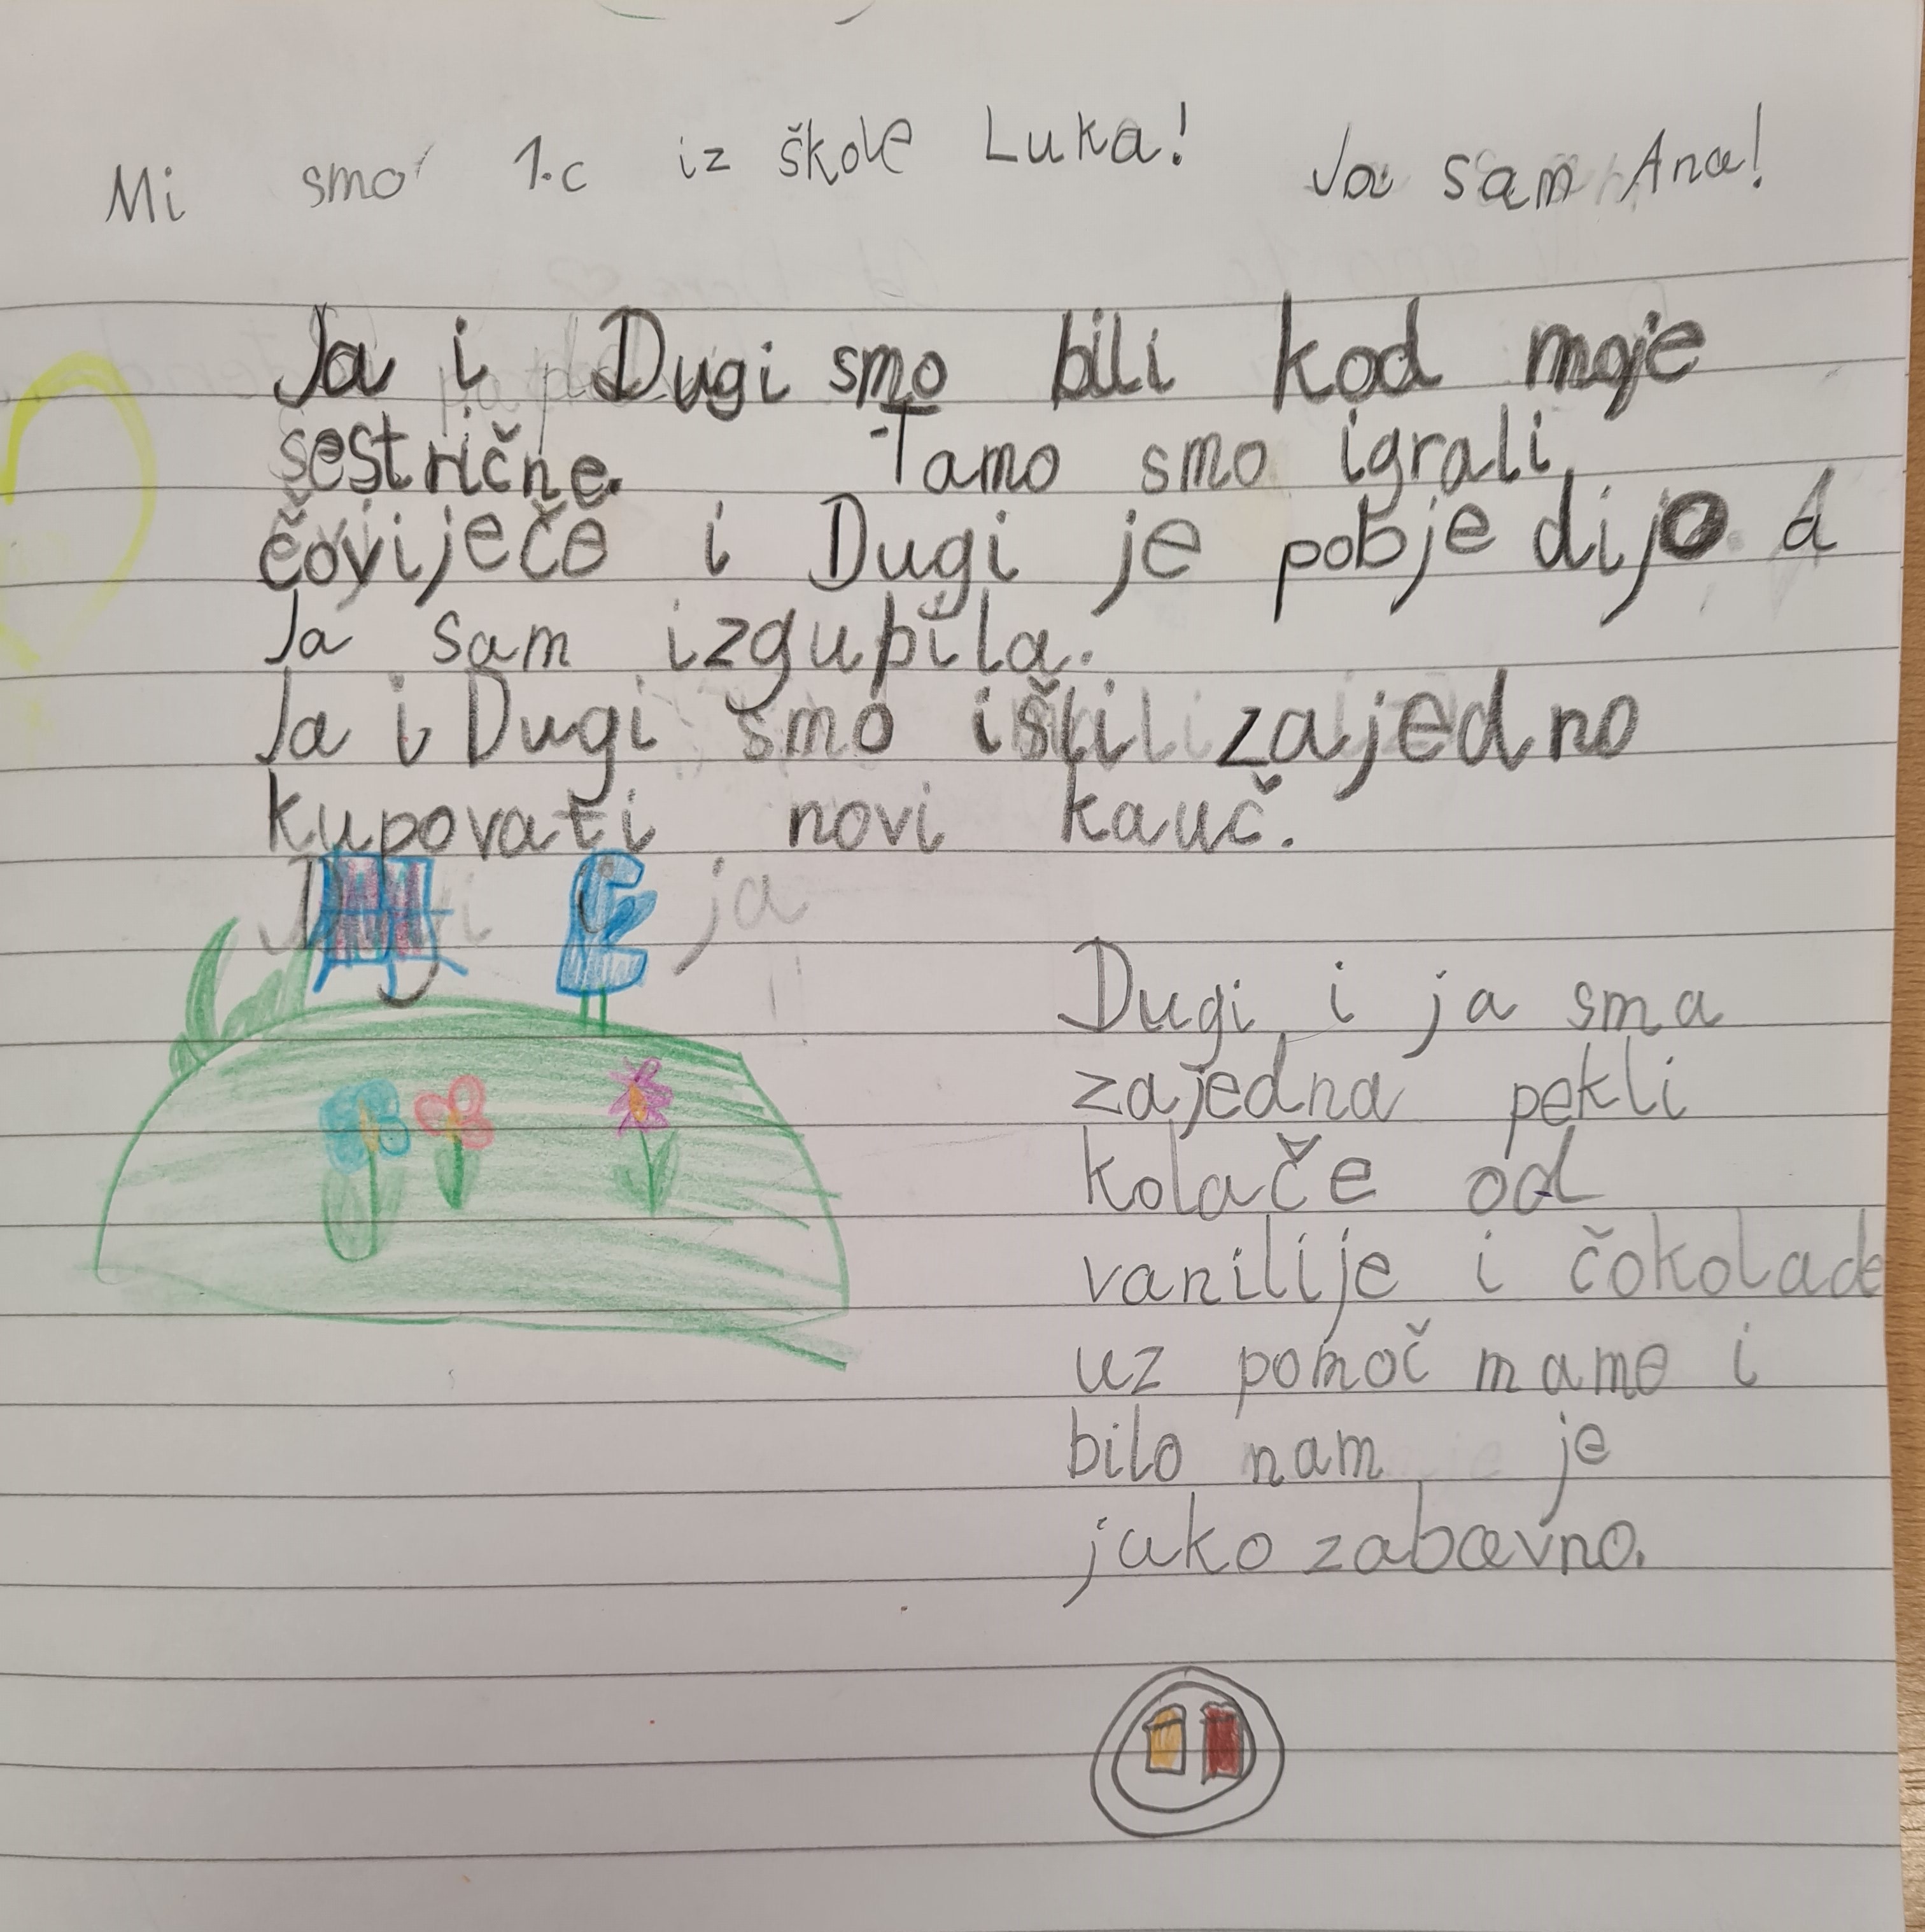 Mi smo 1.c iz škole Luka! Ja sam Ana!
Ja i Dugi smo bili kod moje
sestrične. Tamo smo igrali
čoviječe i Dugi je pobjedijo a
Ja sam izgubila.
Ja i Dugi smo išli zajedno
kupovati novi kauč.
i ja
Dugi i ja smo
zajedno pekli
kolače od
vanilije i čokolade
uz pomoč mame i
bilo nam je
jako zabavno.